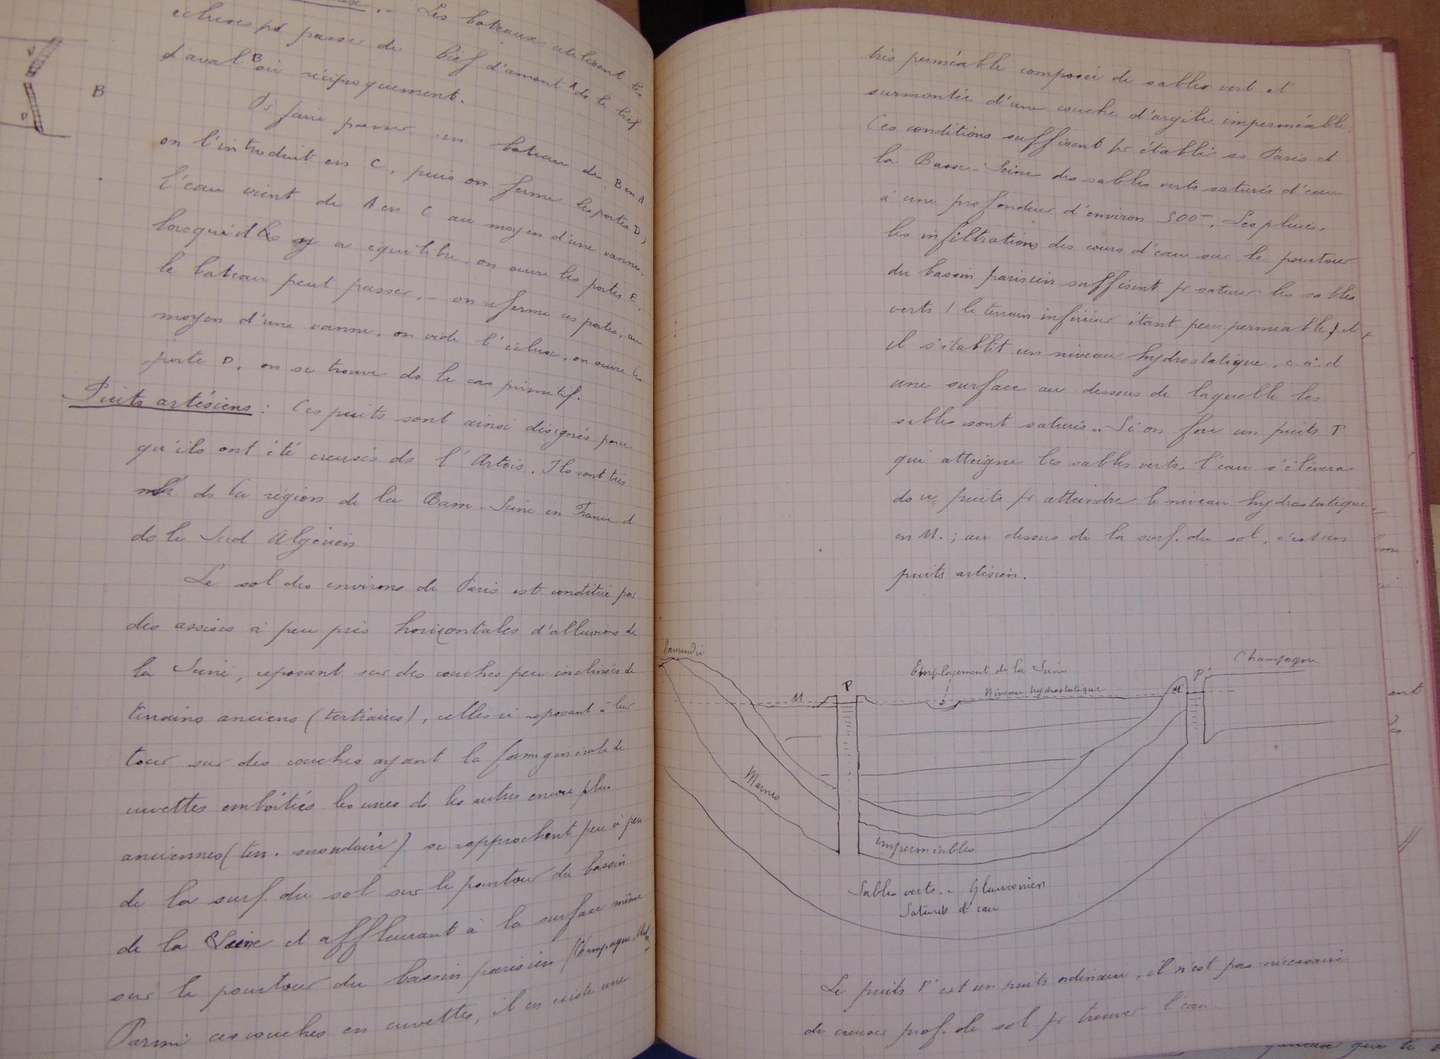 Les bateaux utilisent les
écluses pr passer du bief d'amont A ds le bief
d'aval B ou réciproquement.
B
D
Pr faire passer un bateau de B en A
on l'introduit en C, puis on ferme les portes D,
l'eau vient de A en C au moyen d'une vanne,
lorsqu'il y a équilibre, on ouvre les portes E,
le bateau peut passer, - on referme ces portes, au
moyen d'une vanne, on vide l'écluse, on ouvre les
portes D, on se trouve ds le cas primitif.
Puits artésiens : Ces puits sont ainsi désignés parce
qu'ils ont été creusés ds l'Artois. Ils sont très
ds la région de la Basse-Seine en France et
ds le Sud Algérien
Le sol des environs de Paris est constitué par
des assises à peu près horizontales d'alluvions de
la Seine, reposant sur des couches peu inclinées de
terrains anciens (tertiaires), celles ci reposant à leur
tour sur des couches ayant la forme générale de
cuvettes emboitées les unes ds les autres encore plus
anciennes (terr. secondaire) se rapprochent peu à peu
de la surf. du sol sur le pourtour du bassin
de la Seine et affleurant à la surface même
sur le pourtour du bassin parisien
Parmi ces couches en cuvettes, il en existe une
très perméable composée de sables vert et
surmontée d'une couche d'argile imperméable.
Ces conditions suffisent pr établir ss Paris et
la Basse-Seine des sables verts saturés d'eau
à une profondeur d'environ 500m. Les pluies,
les infiltrations des cours d'eau sur le pourtour
du bassin parisien suffisent pr saturer les sables
verts (le terrain inférieur étant peu perméable) et
il s'établit un niveau hydrostatique, c. à. d
une surface au dessous de laquelle les
sables sont saturés. Si on fore un puits P
qui atteigne les sables verts, l'eau s'élèvera
ds ce puits pr atteindre le niveau hydrostatique
en M. ; au dessus de la surf. du sol, c'est un
puits artésien.
Normandie
M
P
Emplacement de la Seine
Niveau hydrostatique
M'
P'
Champagne
Marnes
imperméables
Sables verts - Glauconien
Saturés d'eau
Le puits P' est un puits ordinaire, il n'est pas nécessaire
de creuser prof. le sol pr trouver l'eau.